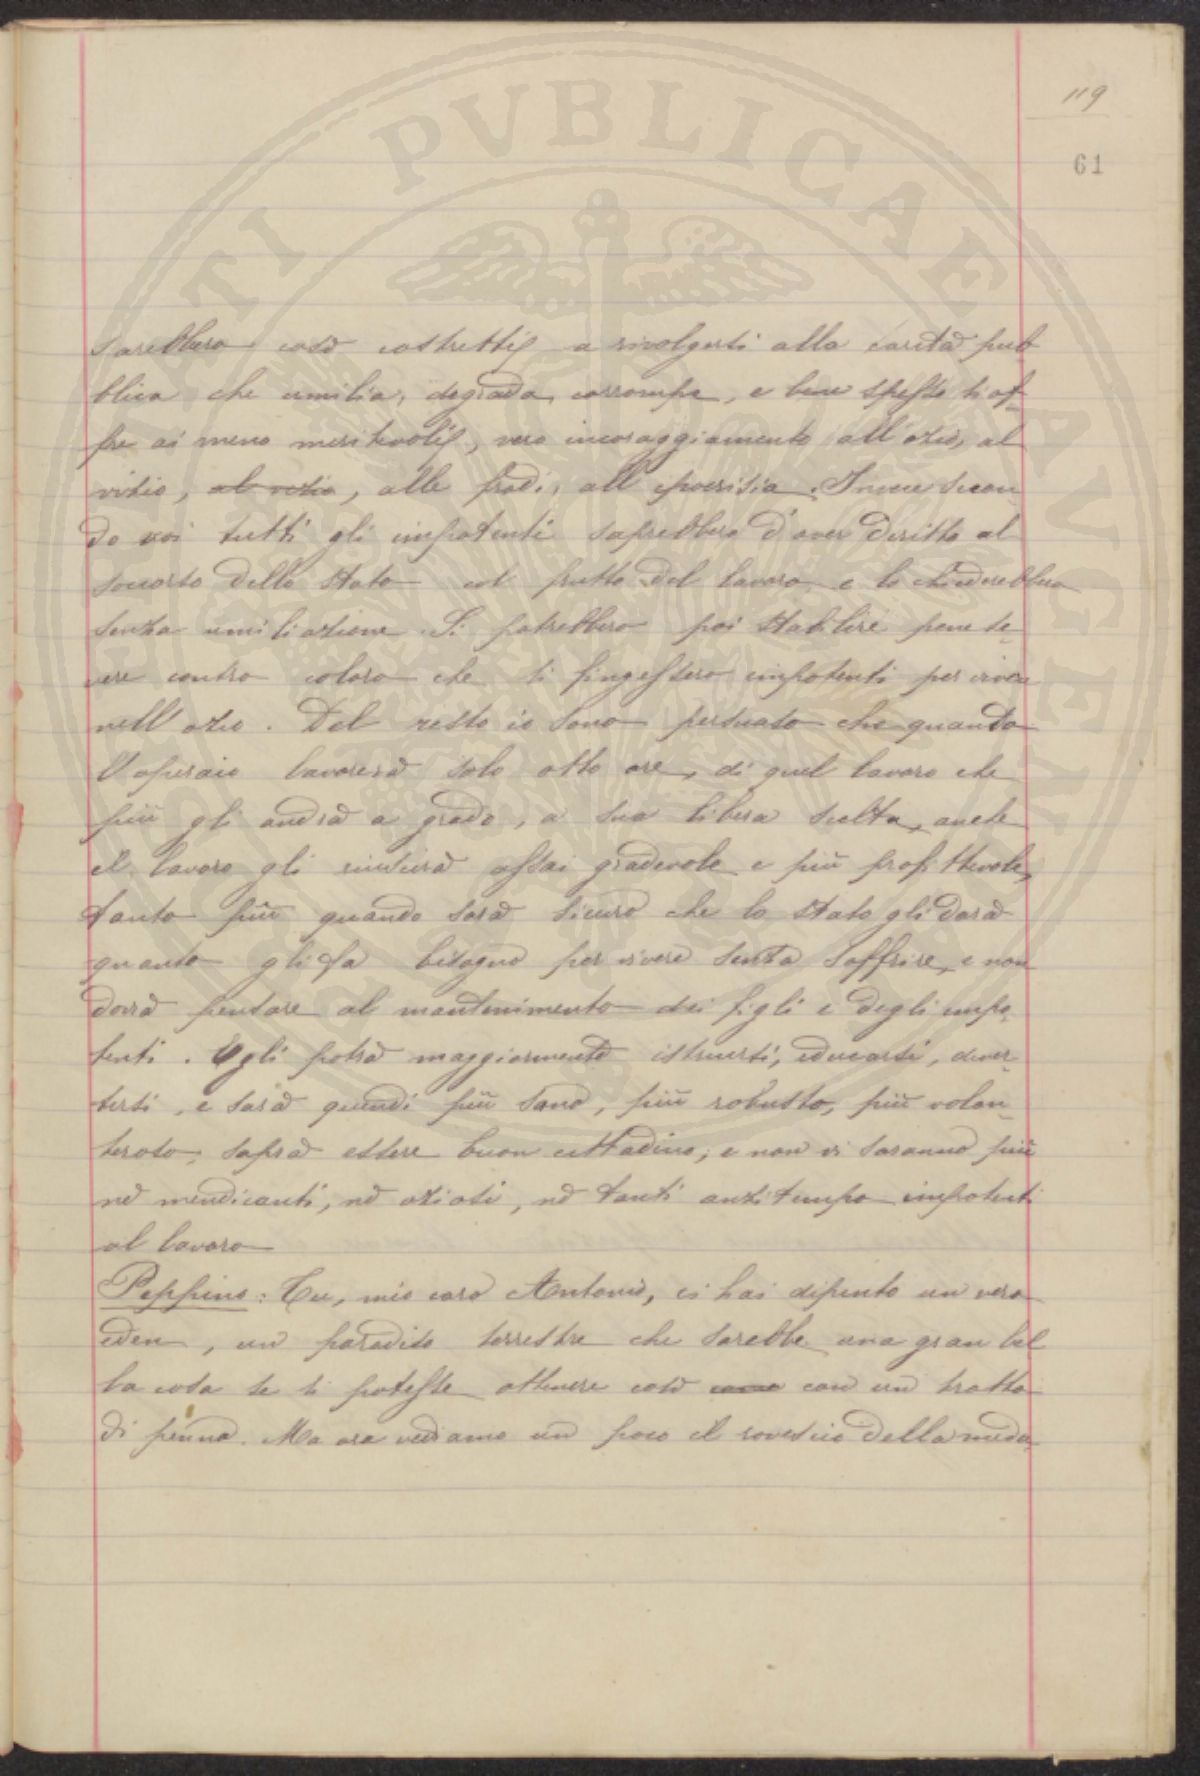 119
61
sarebbero così costretti, a rivolgersi alla carità pub
blica che umilia, degrada, corrompe, e bene spesso si of-
fre ai meno meritevoli, vero incoraggiamento all'ozio, al
vizio, al vizio, alle frodi, all'ipocrisia. Invece secon-
do noi tutti gli impotenti saprebbero d'aver diritto al
soccorso dello Stato col frutto del lavoro, e lo chiederebbero
senza umiliazione. Si potrebbero poi stabilire pene se-
vere contro coloro che si fingessero impotenti per vivere
nell'ozio. Del resto io sono persuaso che quando
l'operaio lavorerà solo otto ore, di quel lavoro che
più gli andrà a grado, a sua libera scelta, anche
il lavoro gli riuscirà assai gradevole e più profittevole,
tanto più quando sarà sicuro che lo Stato gli darà
quanto gli fa bisogno per vivere senza soffrire, e non
dovrà pensare al mantenimento dei figli e degli impo-
tenti. Egli potrà maggiormente istruirsi, educarsi, diver-
tirsi, e sarà quindi più sano, più robusto, più volon-
teroso, saprà essere buon cittadino; e non vi saranno più
nè mendicanti, nè oziosi, nè tanti anzitempo impotenti
al lavoro
Peppino: Tu, mio caro Antonio, ci hai dipinto un vero
eden, un paradiso terrestre che sarebbe una gran bel
la cosa se si potesse ottenere così come con un tratto
di penna. Ma ora vediamo un poco il rovescio della meda-
PVBLICAE